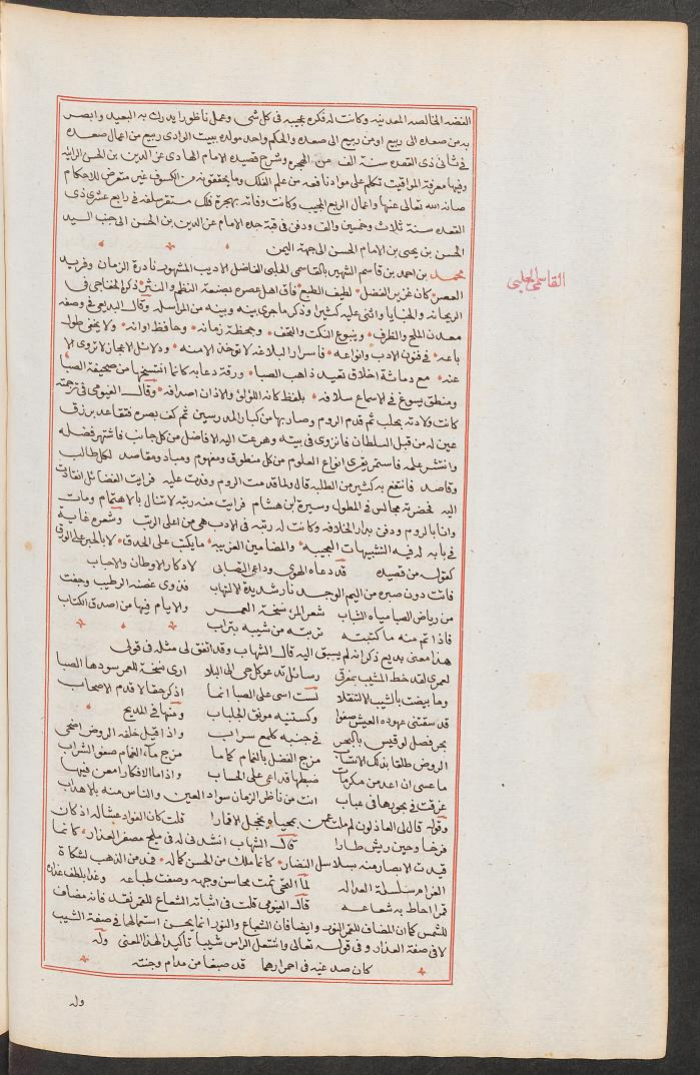 الفضه الخالصه المعدنيه وكانت له فكره عجيبه فى كل شى وعمل ناظورا يدرك به البعيد وابصر
به من صعده الى ربيع اومن ربيع الى صعده والحكم واحد مولده ببيت الوادى ربيع من اعمال صعده
فى ثانى ذى القعده سنة الف من الهجره وشرح قصيده الامام الهادى عز الدين بن الحسن الرائيه
وفيها معرفة المواقيت تكلم على مواد نافعه من علم الفلك وما يحققونه من الكسوف غير متعرض للاحكام
صانه الله تعالى عنها واعمال الربع المجيب وكانت وفاته بهجرة فلك مستقر سلفه فى رابع عشرى ذى
القعده سنة ثلاث وخمسين والف ودفن فى قبة جده الامام عز الدين بن الحسن الى جنب السيد
الحسن بن يحيى بن الامام الحسن الى جهة اليمن
محمد بن احمد بن قاسم الشهير بالقاسمى الحلبى الفاضل الاديب المشهور نادرة الزمان وفريد
العصر كان غزير الفضل لطيف الطبع فاق اهل عصره بصنعة النظم والنثر ذكره الخفاجى فى
الريحانه والخبايا واثنى عليه كثيرا وذكر ماجرى بينه وبينه من المراسله وقال البديعى فى وصفه
معدن الملح والطرف وينبوع النكت والتحف وجحظة زمانه وحافظ اوانه ولا يخفى طول
باعه فى فنون الادب وانواعه فاسرار البلاغه لا توخذ الا منه ودلائل الاعجاز لا تروى الا
عنه مع دماثة اخلاق تعيد ذاهب الصبا ورقة دعابه كانما انتسخها من صحيفة الصبا
ومنطق يسوغ فى الاسماع سلافه بلفظ كانه اللؤلؤ والاذان اصدافه وقال الفيومى فى ترجمته
كانت ولادته بحلب ثم قدم الروم وصار بها من كبار المدرسين ثم كف بصره فتقاعد برزق
عين له من قبل السلطان فانزوى فى بيته وهرعت اليه الافاضل من كل جانب فاشتهر فضله
وانتشر علمه فاستمر يقرى انواع العلوم من كل منطوق ومفهوم ومباد ومقاصد لكل طالب
وقاصد فانتفع به كثير من الطلبه قال ولما قدمت الروم وفدت عليه فرايت الفضائل انقادت
اليه فحضرت مجالس فى المطول وسيرة ابن هشام فرايت منه رتبه لا تنال بالاهتمام ومات
وانا بالروم ودفن بدار الخلافه وكانت له رتبه فى الادب هى من اعلى الرتب وشعره غاية
فى بابه له فيه التشبيهات العجيبه والمضامين الغريبه ما يكتب على الحدق لا بالحبر على الورق
كقوله من قصيده قد دعاه الهوى وداعى التصابى لادكار الاوطان والاحباب
فاتت دون صبره من اليم الوجد نار شديدة الالتهاب فذوى غصنه الرطيب وجفت
من رياض الصبا مياه الشباب شعر المرء نسخة العمر والايام فيها من اصدق الكتاب
فاذا تم منه ما كتبته تربته من شيبه بتراب
هذا معنى بديع ذكر انه لم يسبق اليه قال الشهاب وقد اتفق لى مثله فى قولى
لعمرى لقد خط المشيب بمفرقى رسائل تدعو كل حى الى البلا ارى نسخة للعمر سودها الصبا
وما بيضت بالشيب الا لتنقلا لست اسى على الصبا انما اذكر حقا لاقدم الاصحاب
قد سقتنى عهوده العيش صفوا وكستنيه مونق الجلباب ومنها فى المديح
بحر فضل لو قيس بالبحر فى جنبه كلمع سراب واذا قيل خلقه الروض اضحى
الروض طلقا بذلك الانتساب مزج الفضل بالنعام كما ما مزج ماء الغمام صفو الشراب
ما عسى ان اعد من مكرمات ضبطها قد اعى على الحساب واذا ما الافكار امعن فيها
غرقت فى بحورها فى عباب انت من ناظر الزمان سواد العين والناس منه بالاهداب
وقوله قال لى العاذلون لم ملت عمن بمحيا يخجل الاقمارا قلت كان الفواد عشا له اذ كان
فرخا وحين ريش طارا قال الشهاب انشدنى له فى مليح مصفر العذار كانما
قيدت الابصار منه بسلاسل النضار كانما ملك من الحسن كماله فمد من الذهب لشكاة
الغرام سلسلة العداله لما التحى تمت محاسن وجهه وصفت طباعه وغدا بلطف عذاره
قمرا احاط به شعاعه قال الفيومى قلت فى اثباته الشعاع للقمر نقد فانه مضاف
للشمس كما ان المضاف للقمر النور وايضا فان الشعاع والنور انما يحسن استعمالها فى صفة الشيب
لا فى صفة العذار وفى قوله تعالى واشتعل الراس شيبا تأكيد لهذا المعنى وله
كان صدغيه فى احمرارهما قد صبغا من مدام وجنته
وله
القاسمى الحلبى